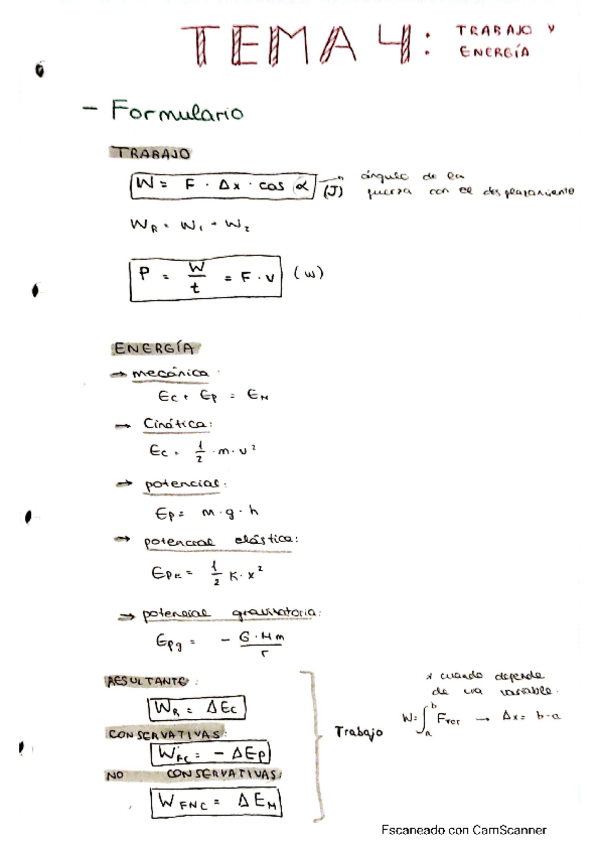 TEMA 4: TRABAJO Y
ENERGÍA
- Formulario
TRABAJO
W = F · Δx · cos α → (J) ángulo de la
fuerza con el desplazamiento
W_R = W₁ + W₂
P = W/t = F · v (W)
ENERGÍA
→ mecánica:
Ec + Ep = E_M
→ Cinética:
Ec = 1/2 · m · v²
→ potencial:
Ep = m · g · h
→ potencial elástica:
E_PE = 1/2 K · x²
→ potencial gravitatoria:
Epg = - G · M m / r
RESULTANTE:
W_R = ΔEc
CONSERVATIVAS:
W_FC = - ΔEp
NO CONSERVATIVAS:
W_FNC = ΔE_M
Trabajo
* cuando depende
de una variable.
W = ∫ₐᵇ → Δx = b - a
Escaneado con CamScanner